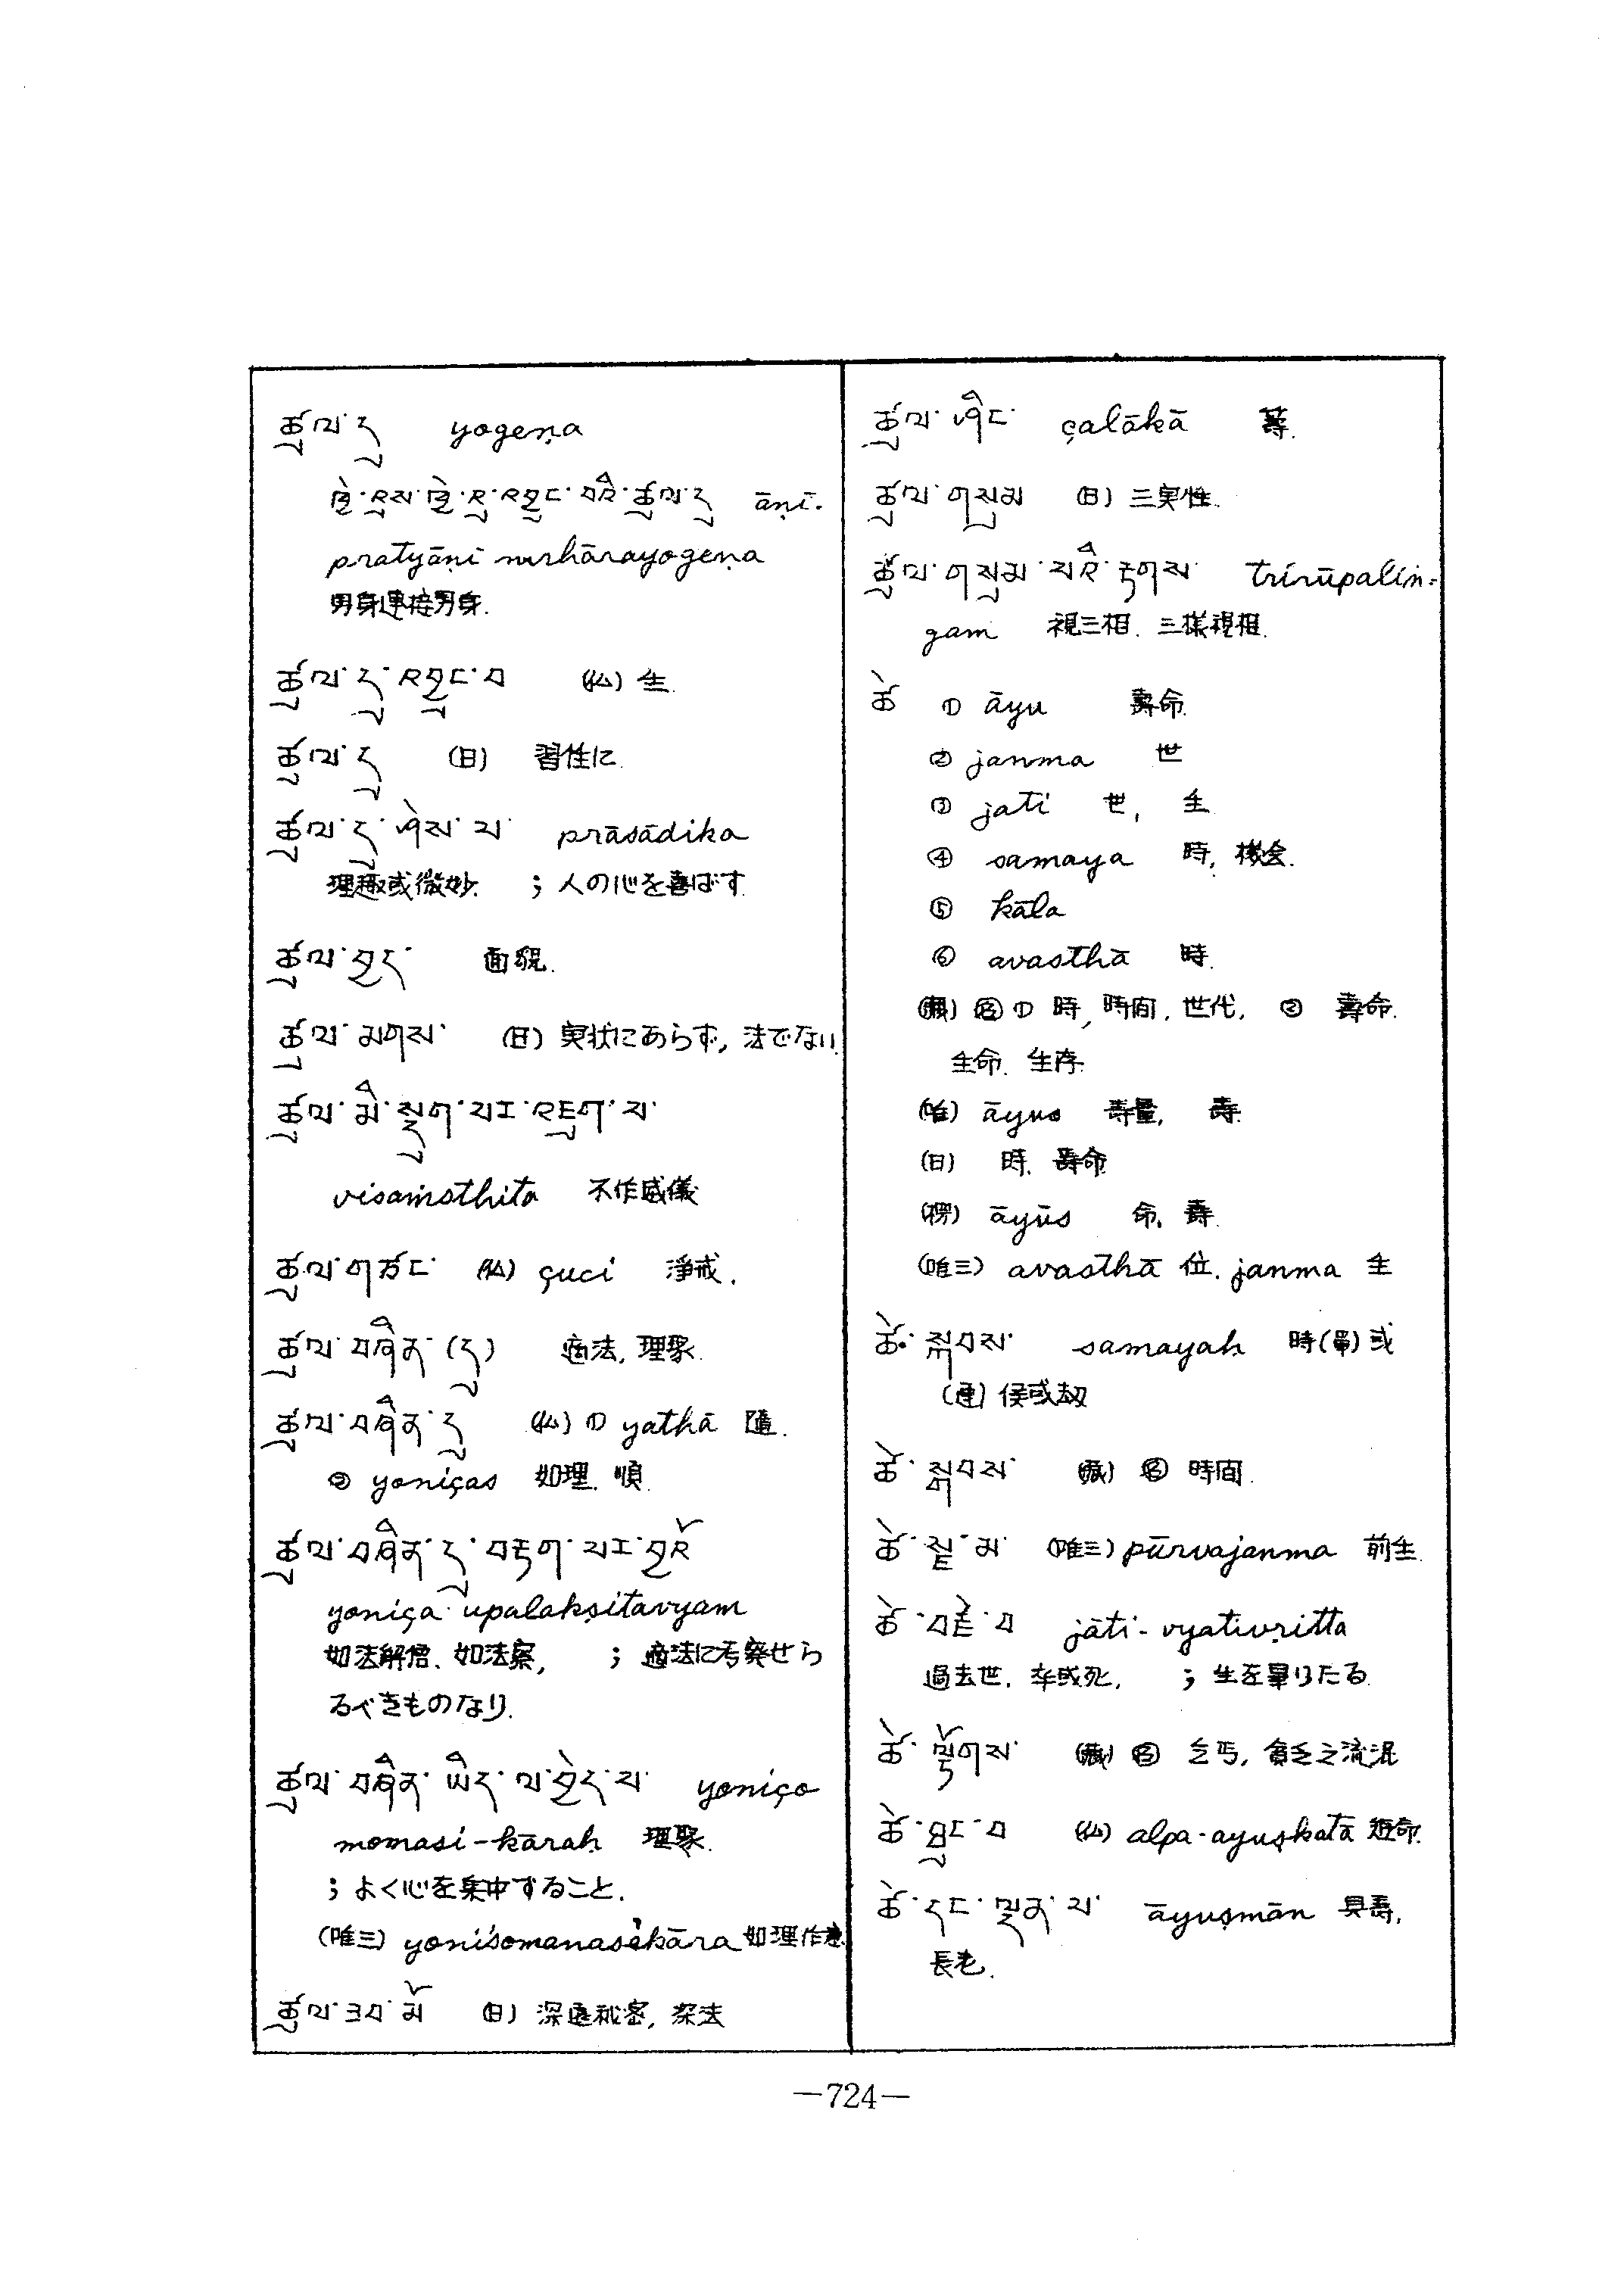 ཚུལ་དུ yogeṇa
ཁྱེ་རུས་ཁྱེ་རུ་འབྱུང་བའི་ཚུལ་དུ āṇī-
pratyāṇī nirhārayogeṇa
男身連接男身.
ཚུལ་དུ་འབྱུང་བ (仏) 生.
ཚུལ་དུ (日) 習性に.
ཚུལ་དུ་ཤེས་པ་ prāsādika
理趣或微妙. ; 人の心を喜ばす.
ཚུལ་བྱད་ 面貌.
ཚུལ་མགས་ (日) 実状にあらず, 法でない.
ཚུལ་མི་སྡུག་པར་འཇུག་པ་
visaṁsthita 不作威儀
ཚུལ་གཙང་ (仏) çuci 淨戒.
ཚུལ་བཞིན་(དུ) 適法, 理聚.
ཚུལ་བཞིན་དུ (仏) ① yathā 随.
② yoniças 如理. 順.
ཚུལ་བཞིན་དུ་བརྟག་པར་བྱའོ
yoniça upalakṣitavyam
如法解悟、如法察, ; 適法に考察せら
るべきものなり.
ཚུལ་བཞིན་ཡིད་ལ་བྱེད་པ་ yoniço
momasi-kāraḥ 理聚.
; よく心を集中すること.
(唯三) yoniśomanasikāra 如理作意.
ཚུལ་ཟབ་མོ (日) 深遠秘密, 深法
ཚུལ་ཤིང་ çalākā 籌.
ཚུལ་གསུམ (日) 三実性.
ཚུལ་གསུམ་པའི་རྟགས་ trirūpaliṅ=
gam 視三相. 三様視相.
ཚེ ① āyu 壽命.
② janma 世
③ jati 世, 生
④ samaya 時, 機会.
⑤ kāla
⑥ avasthā 時.
(蔵) 名 ① 時, 時間, 世代, ② 壽命.
生命. 生存.
(唯) āyus 壽量, 壽.
(日) 時. 壽命
(楞) āyūs 命、壽.
(唯三) avasthā 位. janma 生
ཚེ་སྐབས་ samayaḥ 時(單)或
(連) 侯或劫
ཚེ་སྐབས་ (蔵) 名 時間.
ཚེ་སྔ་མ་ (唯三) pūrvajanma 前生.
ཚེ་བརྗེ་བ jāti-vyativṛitta
過去世. 卒或死, ; 生を畢りたる.
ཚེ་ལྟོགས་ (蔵) 名 乞丐, 貧乏之流氓
ཚེ་ཐུང་བ (仏) alpa-ayuṣkatā 短命.
ཚེ་དང་ལྡན་པ་ āyuṣmān 具壽,
長老.
—724—